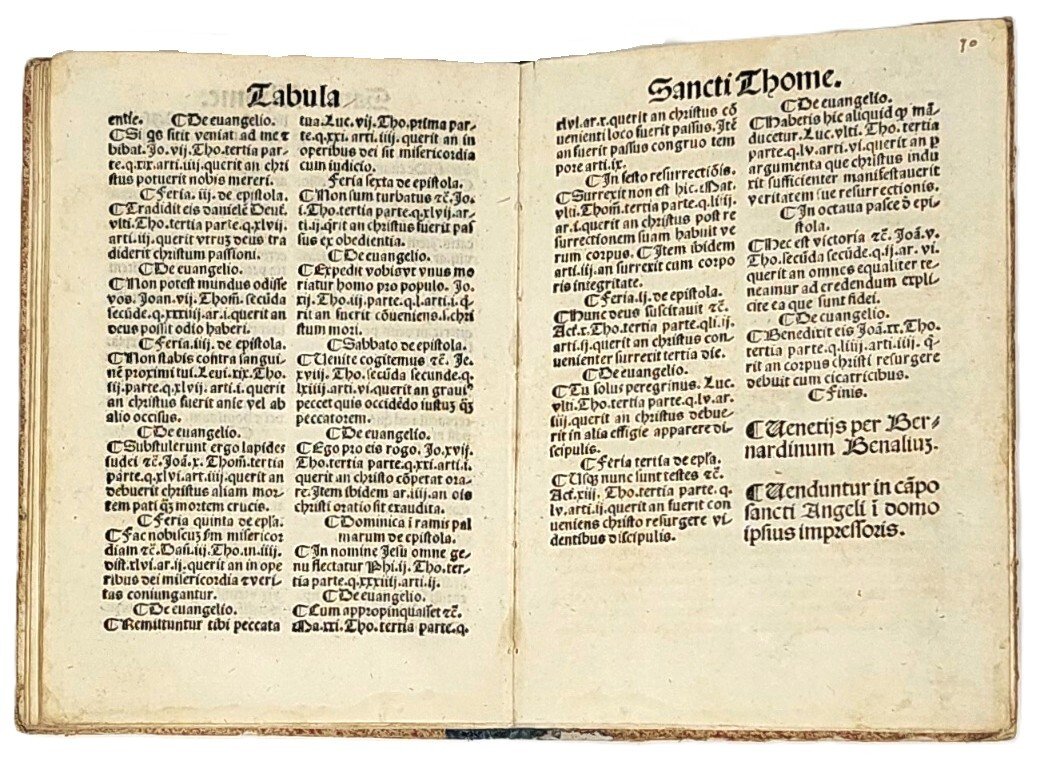 Tabula
entie. ⸿De euangelio.
⸿Si q̄s sitit veniat ad me ⁊
bibat. Jo. vij. Tho. tertia par-
te. q. xix. arti. iiij. querit an chri
stus potuerit nobis mereri.
⸿Feria. iij. de epistola.
⸿Tradidit eis danielē Deut̄.
vlti. Tho. tertia parte. q. xlvij.
arti. iij. querit vtruꝫ deus tra
diderit christum passioni.
⸿De euangelio.
⸿Non potest mundus odisse
vos. Joan. vij. Thom̄. secūda
secūde. q. xxxiiij. ar. i. querit an
deus possit odio haberi.
⸿Feria. iiij. de epistola.
⸿Non stabis contra sangui-
nē proximi tui. Leui. xix. Tho.
iij. parte. q. xlvij. arti. i. querit
an christus fuerit a nse vel ab
alio occisus.
⸿De euangelio.
⸿Sustulerunt ergo lapides
iudei ⁊c̄. Joā. x. Thom̄. tertia
parte. q. xlvi. art. iiij. querit an
debuerit christus aliam mor-
tem pati q̄ȝ mortem crucis.
⸿Feria quinta de ep̄la.
⸿Fac nobiscuꝫ ſm misericor
diam ⁊c̄. Dań. iij. Tho. in. iiij.
dist. xlvi. ar. ij. querit an in ope
ribus dei misericordia ⁊ veri-
tas coniungantur.
⸿De euangelio.
⸿Remittuntur tibi peccata
tua. Luc. vij. Tho. prima par-
te. q. xxi. arti. iiij. querit an in
operibus dei sit misericordia
cum iudicio.
Feria sexta de epistola.
⸿Non sum turbatus ⁊c̄. Jo.
i. Tho. tertia parte. q. xlvij. ar-
ti. ij. q̄rit an christus fuerit pas
sus ex obedientia.
⸿De euangelio.
⸿Expedit vobis vt vnus mo
riatur homo pro populo. Jo.
xij. Tho. iij. parte. q. l. arti. i. q̄-
rit an fuerit cōueniens. s. chri
stum mori.
⸿Sabbato de epistola.
⸿Uenite cogitemus ⁊c̄. Je.
xviij. Tho. secūda secunde. q.
lxiiij. arti. vi. querit an grauiꝰ
peccet quis occidēdo iustuꝫ q̄ȝ
peccatorem.
⸿De euangelio.
⸿Ego pro eis rogo. Jo. xvij.
Tho. tertia parte. q. xxi. arti. i.
querit an christo cōpetat ora-
re. Item ibidem ar. iij. an ois
christi oratio sit exaudita.
⸿Dominica ī ramis pal
marum de epistola.
⸿In nomine Jesu omne ge-
nu flectatur Phi. ij. Tho. ter-
tia parte. q. xxxiiij. arti. ij.
⸿De euangelio.
⸿Cum appropinquasset ⁊c̄.
Ma. xxi. Tho. tertia parte. q.
90
Sancti Thome.
xlvi. ar. x. querit an christus cō
uenienti loco fuerit passus. Itē
an fuerit passus congruo tem
pore arti. ix.
⸿In festo resurrectiōis.
⸿Surrexit non est hic. Mat.
vlti. Thom̄. tertia parte. q. liiij.
ar. i. querit an christus post re
surrectionem suam habuit ve
rum corpus. ⸿Item ibidem
arti. iij. an surrexit cum corpo
ris integritate.
⸿Feria. ij. de epistola.
⸿Hunc deus suscitauit ⁊c̄.
Act. x. Tho. tertia parte. q. liij.
arti. ij. querit an christus con-
uenienter surrexit tertia die.
⸿De euangelio.
⸿Tu solus peregrinus. Luc.
vlti. Tho. tertia parte. q. lv. ar.
iiij. querit an christus debue-
rit in alia effigie apparere di-
scipulis.
⸿Feria tertia de ep̄la.
⸿Usqꝫ nunc sunt testes ⁊c̄.
Act. xiij. Tho. tertia parte. q.
lv. arti. ij. querit an fuerit con
ueniens christo resurgere vi-
dentibus discipulis.
⸿De euangelio.
⸿Habetis hic aliquid qd̄ mā-
ducetur. Luc. vlti. Tho. tertia
parte. q. lv. arti. vi. querit an ꝑ
argumenta que christus indu
xit sufficienter manifestauerit
veritatem sue resurrectionis.
⸿In octaua pasce d̄ epi-
stola.
⸿Hec est victoria ⁊c̄. Joā. v.
Tho. secūda secūde. q. ij. ar. vi.
querit an omnes equaliter te-
neamur ad credendum expli-
cite ea que sunt fidei.
⸿De euangelio.
⸿Benedixit eis Joā. xx. Tho.
tertia parte. q. liiij. arti. iiij. q̄-
rit an corpus christi resurgere
debuit cum cicatricibus.
⸿Finis.
⸿Uenetijs per Ber-
nardinum Benaliuꝫ.
⸿Uenduntur in cāpo
sancti Angeli ī domo
ipsius impressoris.